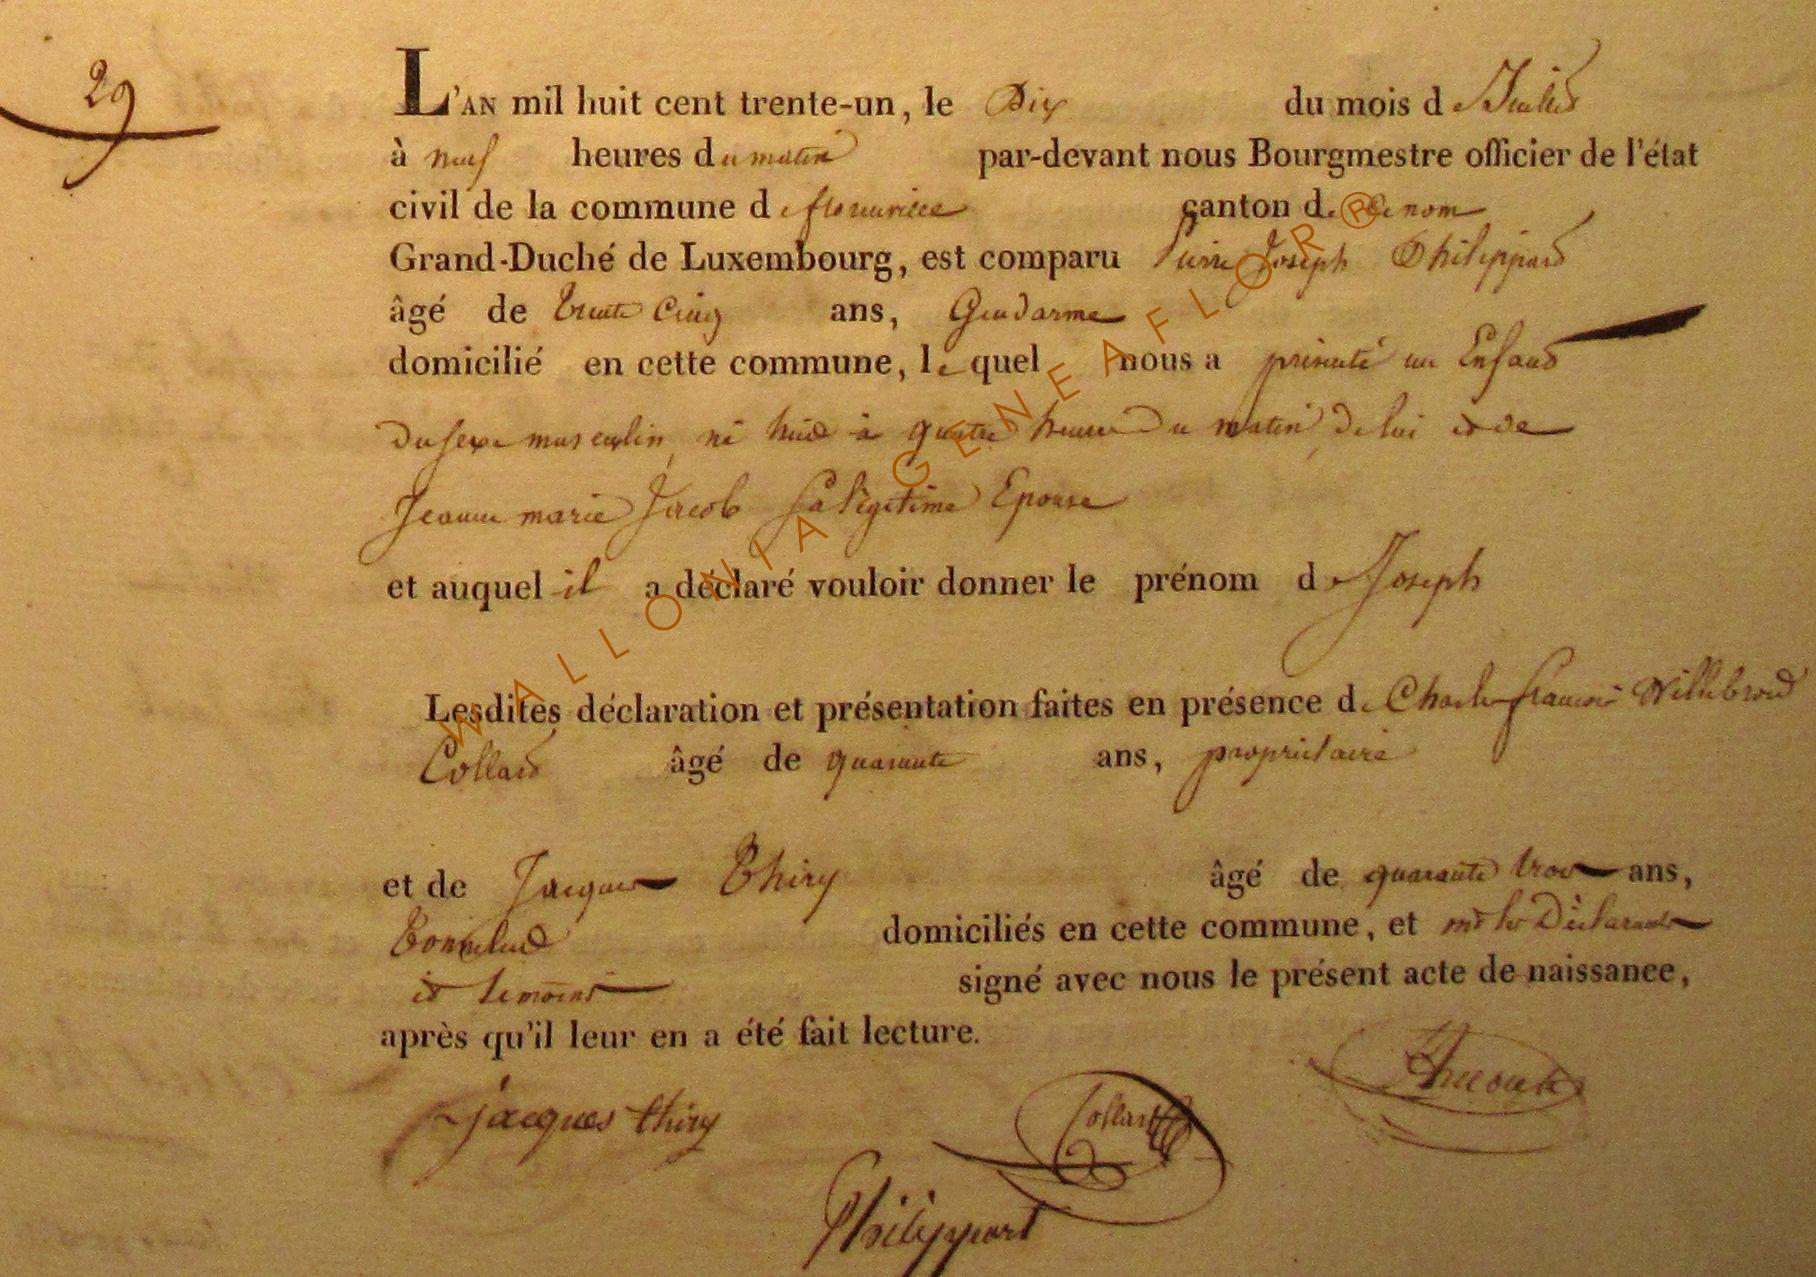 29
L'AN mil huit cent trente-un, le Dix du mois de Juillet
à neuf heures du matin par-devant nous Bourgmestre officier de l'état
civil de la commune de florenville canton de idem nom
Grand-Duché de Luxembourg, est comparu Pierre Joseph Philippart
âgé de trente cinq ans, Gendarme
domicilié en cette commune, lequel nous a présenté un Enfant
du sexe masculin, né hier à quatre heures du matin, de lui et de
Jeanne marie Jacob Sa légitime Epouse
et auquel il a déclaré vouloir donner le prénom de Joseph
Lesdites déclaration et présentation faites en présence de Charles françois Willebrord
Collard âgé de quarante ans, propriétaire
et de Jacques Thiry âgé de quarante trois ans,
domiciliés en cette commune, et les Déclarant
et temoins signé avec nous le présent acte de naissance,
après qu'il leur en a été fait lecture.
jacques thiry Collard
Philippart
WALLONIA GENEAFLOR ®